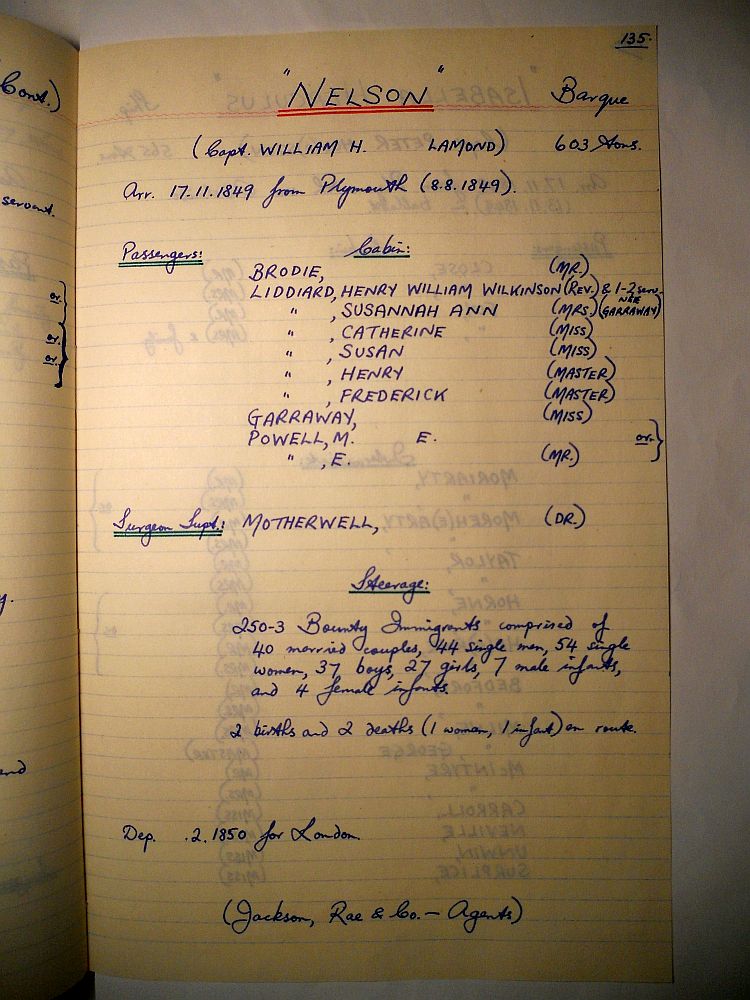 135.
"NELSON" Barque
(Capt. WILLIAM H. LAMOND) 603 Tons.
Arr. 17.11.1849 from Plymouth (8.8.1849).
Passengers: Cabin:
BRODIE, (MR.)
LIDDIARD, HENRY WILLIAM WILKINSON (REV.) & 1-2 serv.
" , SUSANNAH ANN (MRS.) (NEE GARRAWAY)
" , CATHERINE (MISS)
" , SUSAN (MISS)
" , HENRY (MASTER)
" , FREDERICK (MASTER)
GARRAWAY, (MISS)
POWELL, M. E. or. }
" , E. (MR.)
Surgeon Supt: MOTHERWELL, (DR.)
Steerage:
250-3 Bounty Immigrants comprised of
40 married couples, 44 single men, 54 single
women, 37 boys, 27 girls, 7 male infants,
and 4 female infants.
2 births and 2 deaths (1 woman, 1 infant) en route.
Dep. .2.1850 for London.
(Jackson, Rae & Co. – Agents)
Cont.)
servant.
or.
or.
or.